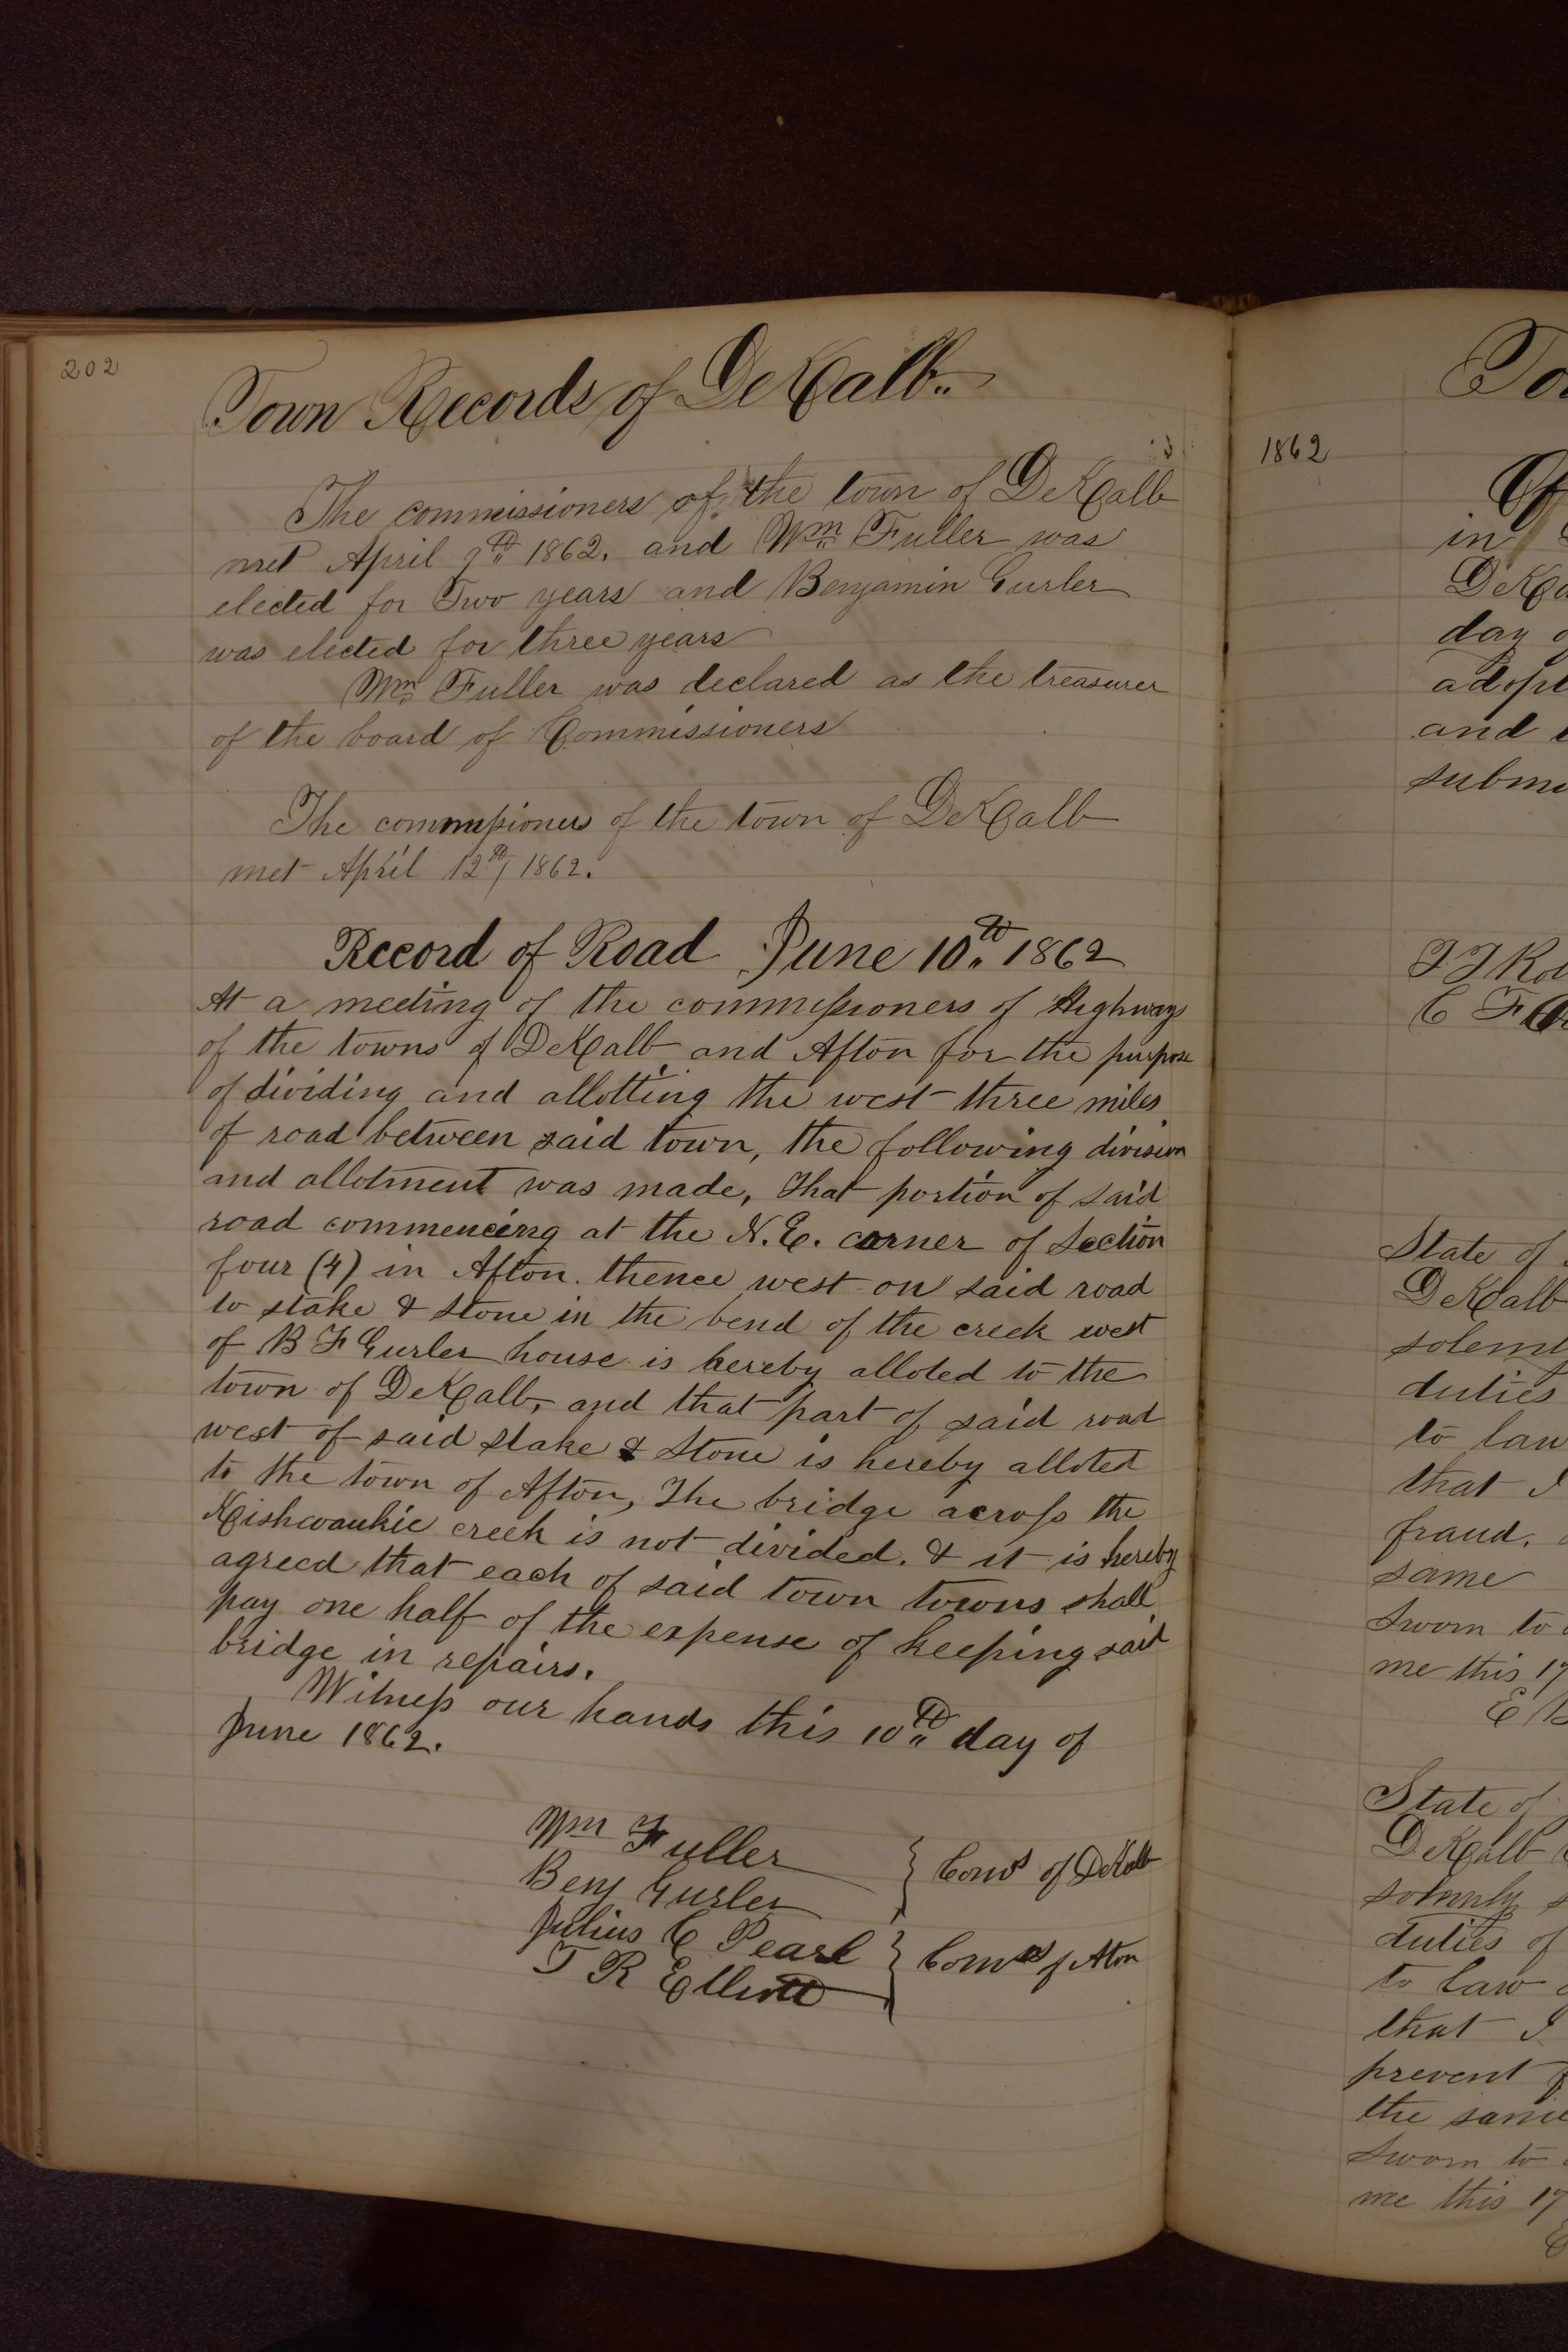 202
Town Records of DeKalb
The commissioners of the town of DeKalb
met April 9th 1862. and Wm Fuller was
elected for Two years and Benjamin Gurler
was elected for three years
Wm Fuller was declared as the treasurer
of the board of Commissioners
The commissioners of the town of DeKalb
met April 12th 1862.
Record of Road June 10th 1862
At a meeting of the commissioners of Highways
of the towns of DeKalb and Afton for the purpose
of dividing and allotting the west three miles
of road between said town, the following division
and allotment was made, That portion of said
road commencing at the N.E. corner of Section
four (4) in Afton. thence west on said road
to stake & Stone in the bend of the creek west
of B F Gurler house is hereby alloted to the
town of DeKalb, and that part of said road
west of said stake & Stone is hereby alloted
to the town of Afton, The bridge across the
Kishwaukie creek is not divided. & it is hereby
agreed that each of said town towns shall
pay one half of the expense of keeping said
bridge in repairs.
Witness our hands this 10th day of
June 1862.
Wm Fuller
Benj Gurler
} Coms of DeKalb
Julius C Pearl
T R Elliott
} Coms of Aton
To
1862
in
DeKa
day o
adopt
and
submi
C F
State of
DeKalb
solem
duties
to law
that I
fraud.
same
Sworn to
me this 17
State of
DeKalb
solmnly s
duties of
to law
that I
prevent f
the same
Sworn to
me this 17